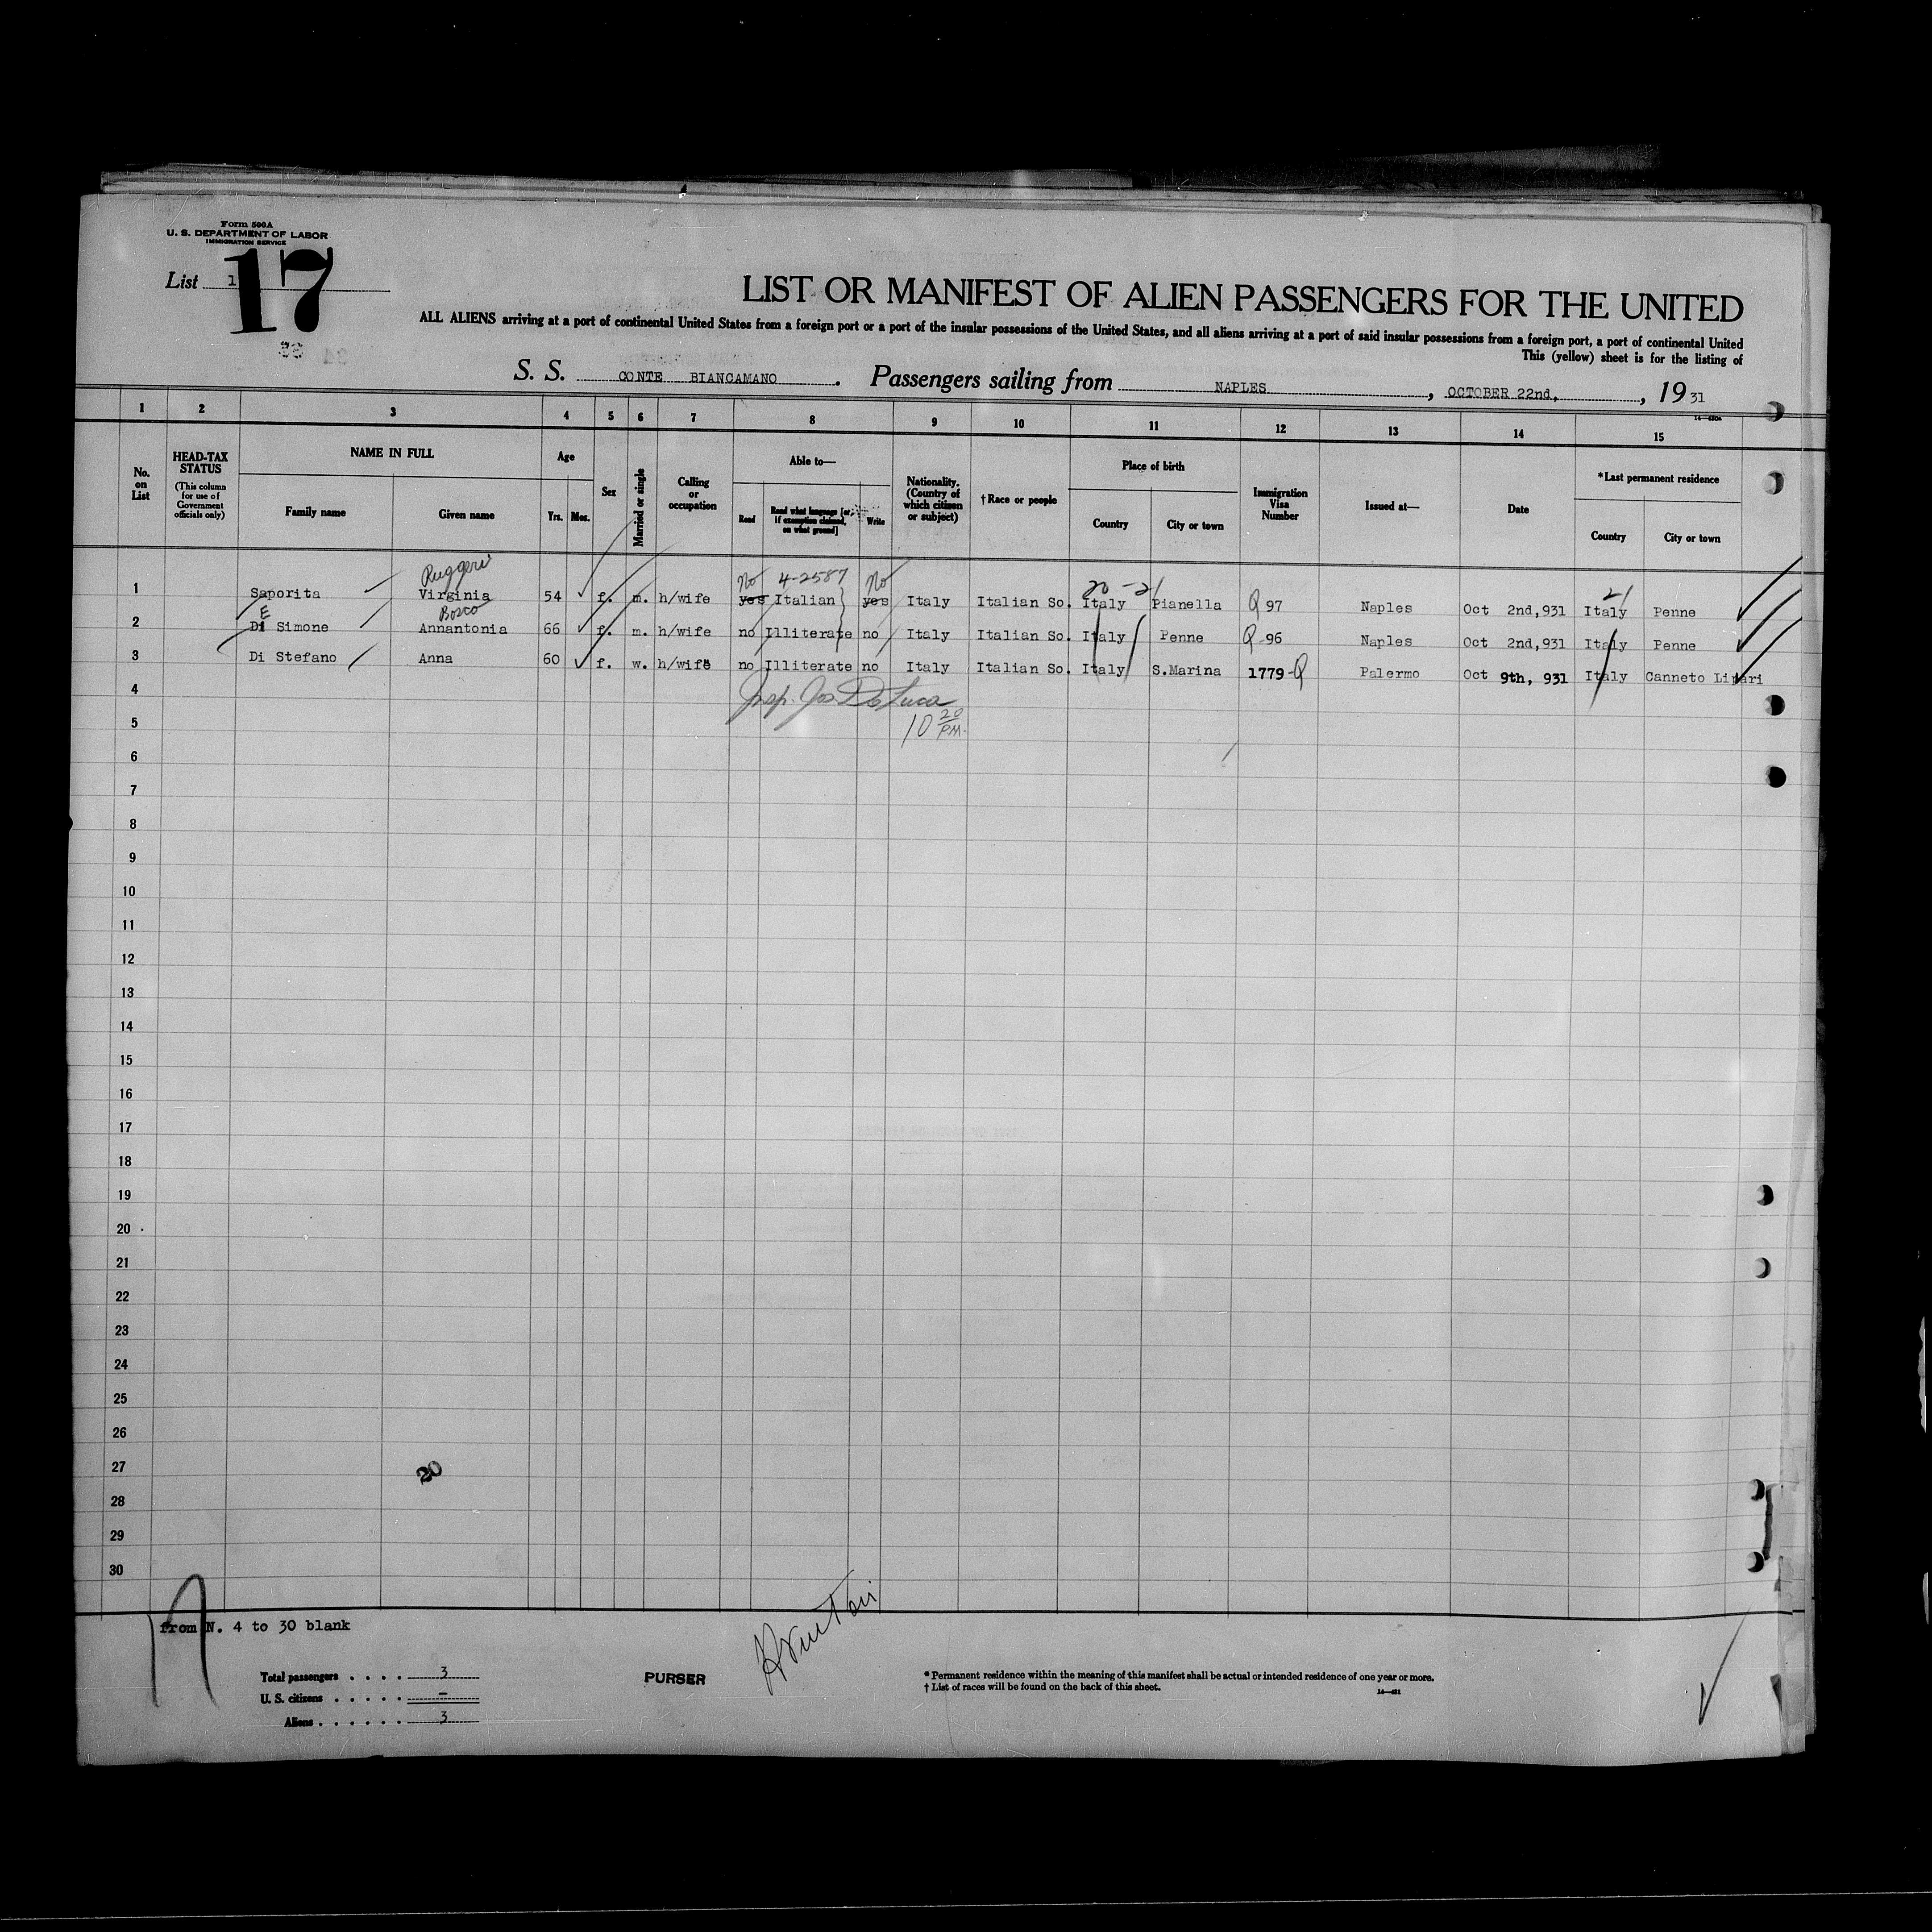 Form 500A
U. S. DEPARTMENT OF LABOR
IMMIGRATION SERVICE
List 1
17
LIST OR MANIFEST OF ALIEN PASSENGERS FOR THE UNITED
ALL ALIENS arriving at a port of continental United States from a foreign port or a port of the insular possessions of the United States, and all aliens arriving at a port of said insular possessions from a foreign port, a port of continental United
This (yellow) sheet is for the listing of
S. S. CONTE BIANCAMANO . Passengers sailing from NAPLES , OCTOBER 22nd, , 19 31
1 2 3 4 5 6 7 8 9 10 11 12 13 14 15
No. on List
HEAD-TAX STATUS
(This column for use of Government officials only)
NAME IN FULL
Family name Given name
Age
Yrs. Mos.
Sex
Married or single
Calling or occupation
Able to—
Read Read what language [or, if exemption claimed, on what ground] Write
Nationality. (Country of which citizen or subject)
†Race or people
Place of birth
Country City or town
Immigration Visa Number
Issued at—
Date
*Last permanent residence
Country City or town
Ruggeri No 4-2587 No 20 - 21 21
1 Saporita Virginia 54 f. m. h/wife yes Italian yes Italy Italian So. Italy Pianella Q 97 Naples Oct 2nd,931 Italy Penne
E Bosco
2 Di Simone Annantonia 66 f. m. h/wife no Illiterate no Italy Italian So. Italy Penne Q 96 Naples Oct 2nd,931 Italy Penne
3 Di Stefano Anna 60 f. w. h/wife no Illiterate no Italy Italian So. Italy S.Marina 1779-Q Palermo Oct 9th, 931 Italy Canneto Lipari
4 Insp. Jos De Luca
5 10 20 PM.
6
7
8
9
10
11
12
13
14
15
16
17
18
19
20
21
22
23
24
25
26
27 20
28
29
30
from N. 4 to 30 blank
Total passengers . . . . 3
U. S. citizens . . . . . . –
Aliens . . . . . . 3
PURSER
* Permanent residence within the meaning of this manifest shall be actual or intended residence of one year or more.
† List of races will be found on the back of this sheet.